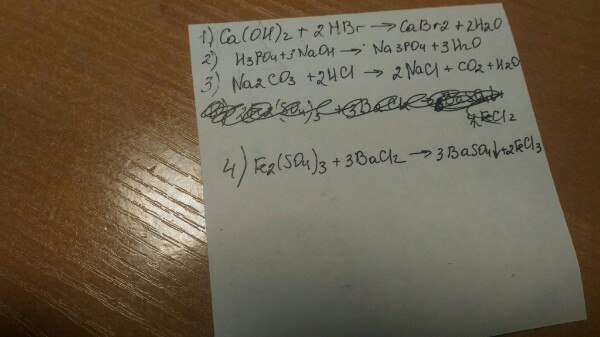 1) Ca(OH)2 + 2HBr → CaBr2 + 2H2O
2) H3PO4 + 3NaOH → Na3PO4 + 3H2O
3) Na2CO3 + 2HCl → 2NaCl + CO2 + H2O
FeCl2
4) Fe2(SO4)3 + 3BaCl2 → 3BaSO4↓ + 2FeCl3